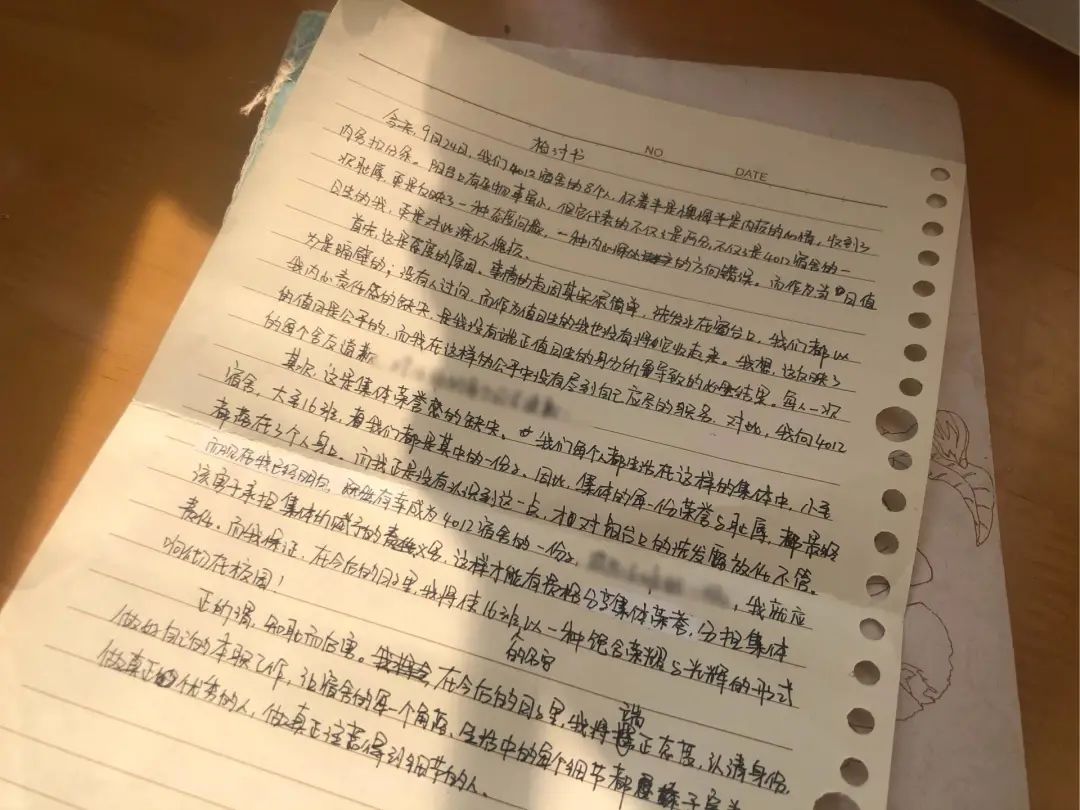 NO
DATE
检讨书
今天,9月24日,我们4012宿舍的8个人,怀着半是懊悔半是内疚的心情,收到了
内务扣分条。阳台上有杂物事虽小,但它代表的不仅仅是两分,不仅仅是4012宿舍的一
次耻辱,更是反映了一种态度问题,一种内心深处的方向错误。而作为当日值
日生的我,更是对此深怀愧疚。
首先,这是态度的原因。事情的起因其实很简单,洗发水在窗台上,我们都以
为是隔壁的;没有人过问,而作为值日生的我也没有将它收起来。我想,这反映了
我内心责任感的缺失,是我没有端正值日生的身份的重导致的必然结果。每人一次
的值日是公平的,而我在这样的公平中没有尽到自己应尽的职务。对此,我向4012
的每个舍友道歉
其次,这是集体荣誉感的缺失。我们每个人都生活在这样的集体中,小至
宿舍,大至16班,我们都是其中的一份子。因此,集体的每一份荣誉与耻辱,都最终
都落在了个人身上。而我正是没有认识到这一点,才对阳台上的洗发露放任不管。
而现在我已经明白,既然有幸成为4012宿舍的一份子,,我就应
该勇于承担集体所赋予的义务,这样才能有资格分享集体荣誉,分担集体
责任。而我保证,在今后的日子里,我将使16班以一种饱含荣耀与光辉的形式
响彻在校园!
的名字
正所谓,知耻而后勇。在今后的日子里,我将端正态度,认清身份,
做好自己的本职工作,让宿舍的每一个角落,生活中的每个细节都
做真正优秀的人,做真正注意得到细节的人。